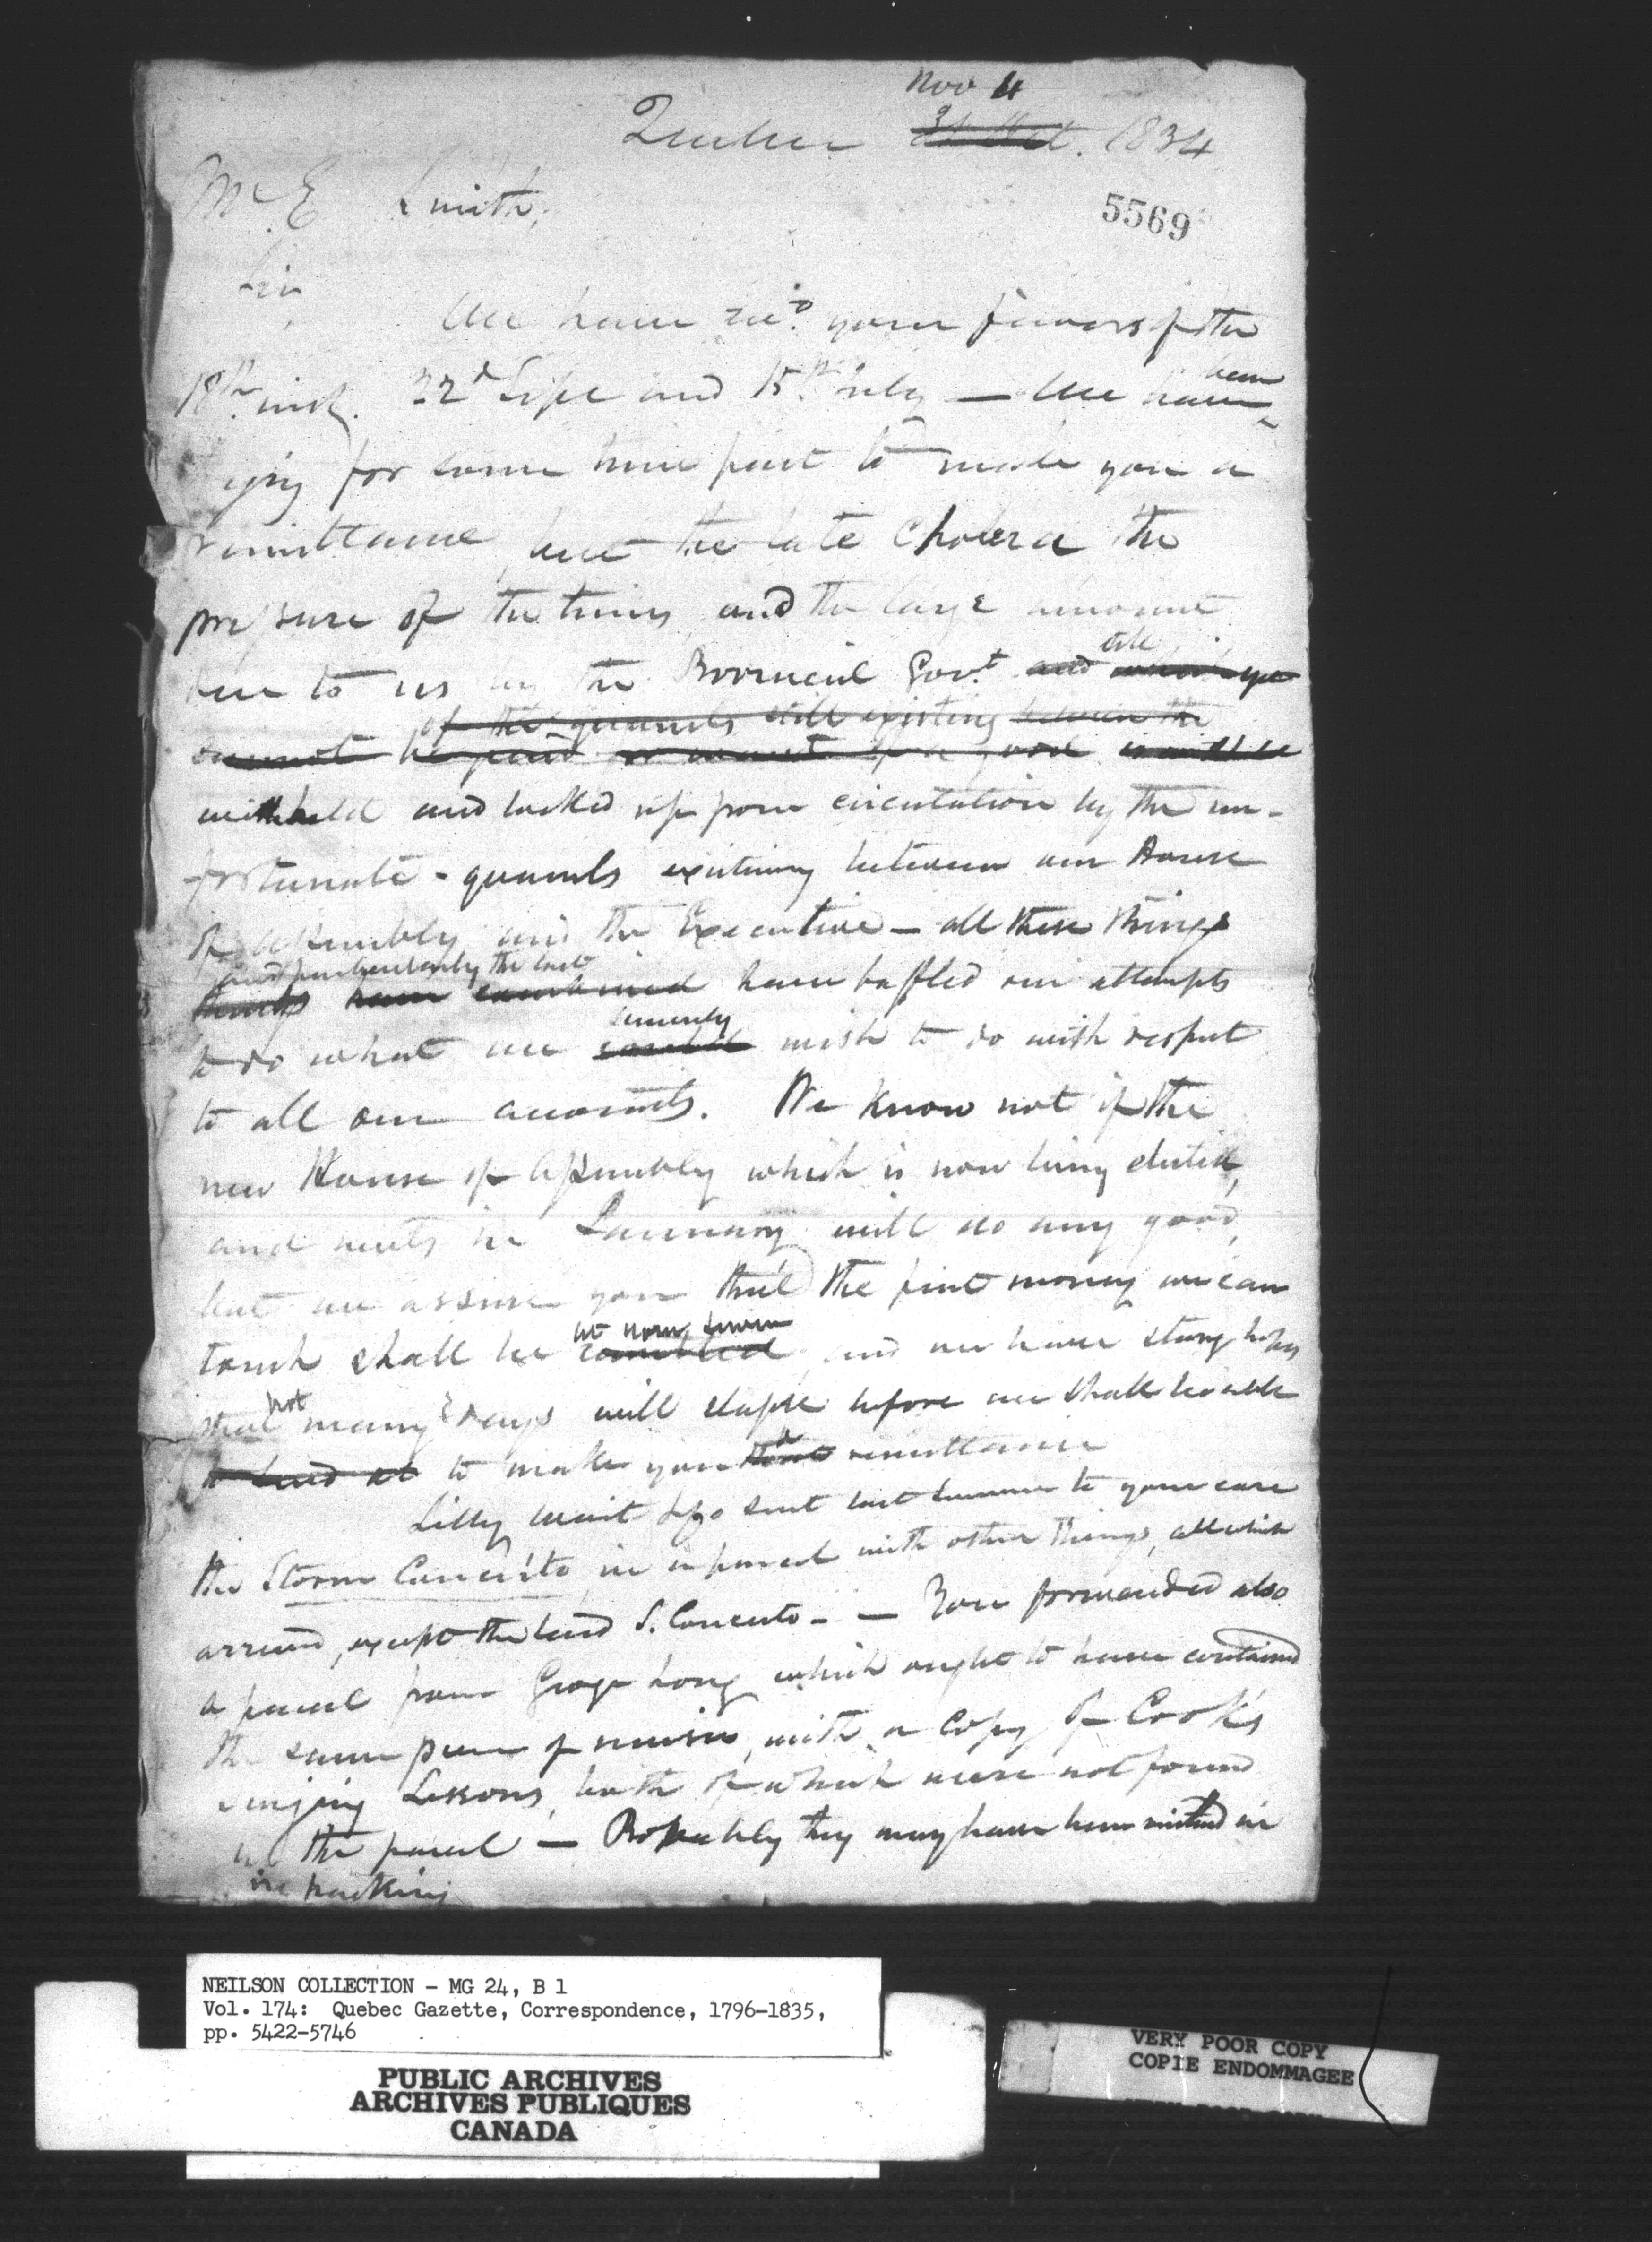 Nov 4
Quebec 31 Oct. 1834
Mr E Smith,
5569
Sir,
We have recd. your favors of the
18th inst. 22d Sept and 15th July — We have been
trying for some time past to make you a
remittance but the late Cholera the
pressure of the times, and the large amount
due to us by the Provincial Govt. and which yet still
of the quarrels still existing between the
cannot be paid for want of a good
withheld and locked up from circulation by the un-
fortunate quarrels existing between our House
of Assembly and the Executive — all these things
and particularly the last
things have combined have baffled our attempts
sincerely
to do what we could wish to do with respect
to all our accounts. We know not if the
new House of Assembly which is now being elected,
and meets in January will do any good,
but we assure you that the first money we can
touch shall be and we have strong hopes
that not many days will elapse before we shall be able
to send at to make you that a remittance
Lilly Wait & Co sent last summer to your care
the Storm Concerto in a parcel with other things, all which
arrived, except the said S. Concerto — — You forwarded also
a parcel from George Long which ought to have contained
the same piece of music, with a copy of Cook's
singing Lessons, both of which were not found
in the parcel — Probably they may have been omitted in
in packing
NEILSON COLLECTION - MG 24, B 1
Vol. 174: Quebec Gazette, Correspondence, 1796-1835,
pp. 5422-5746
PUBLIC ARCHIVES
ARCHIVES PUBLIQUES
CANADA
VERY POOR COPY
COPIE ENDOMMAGEE